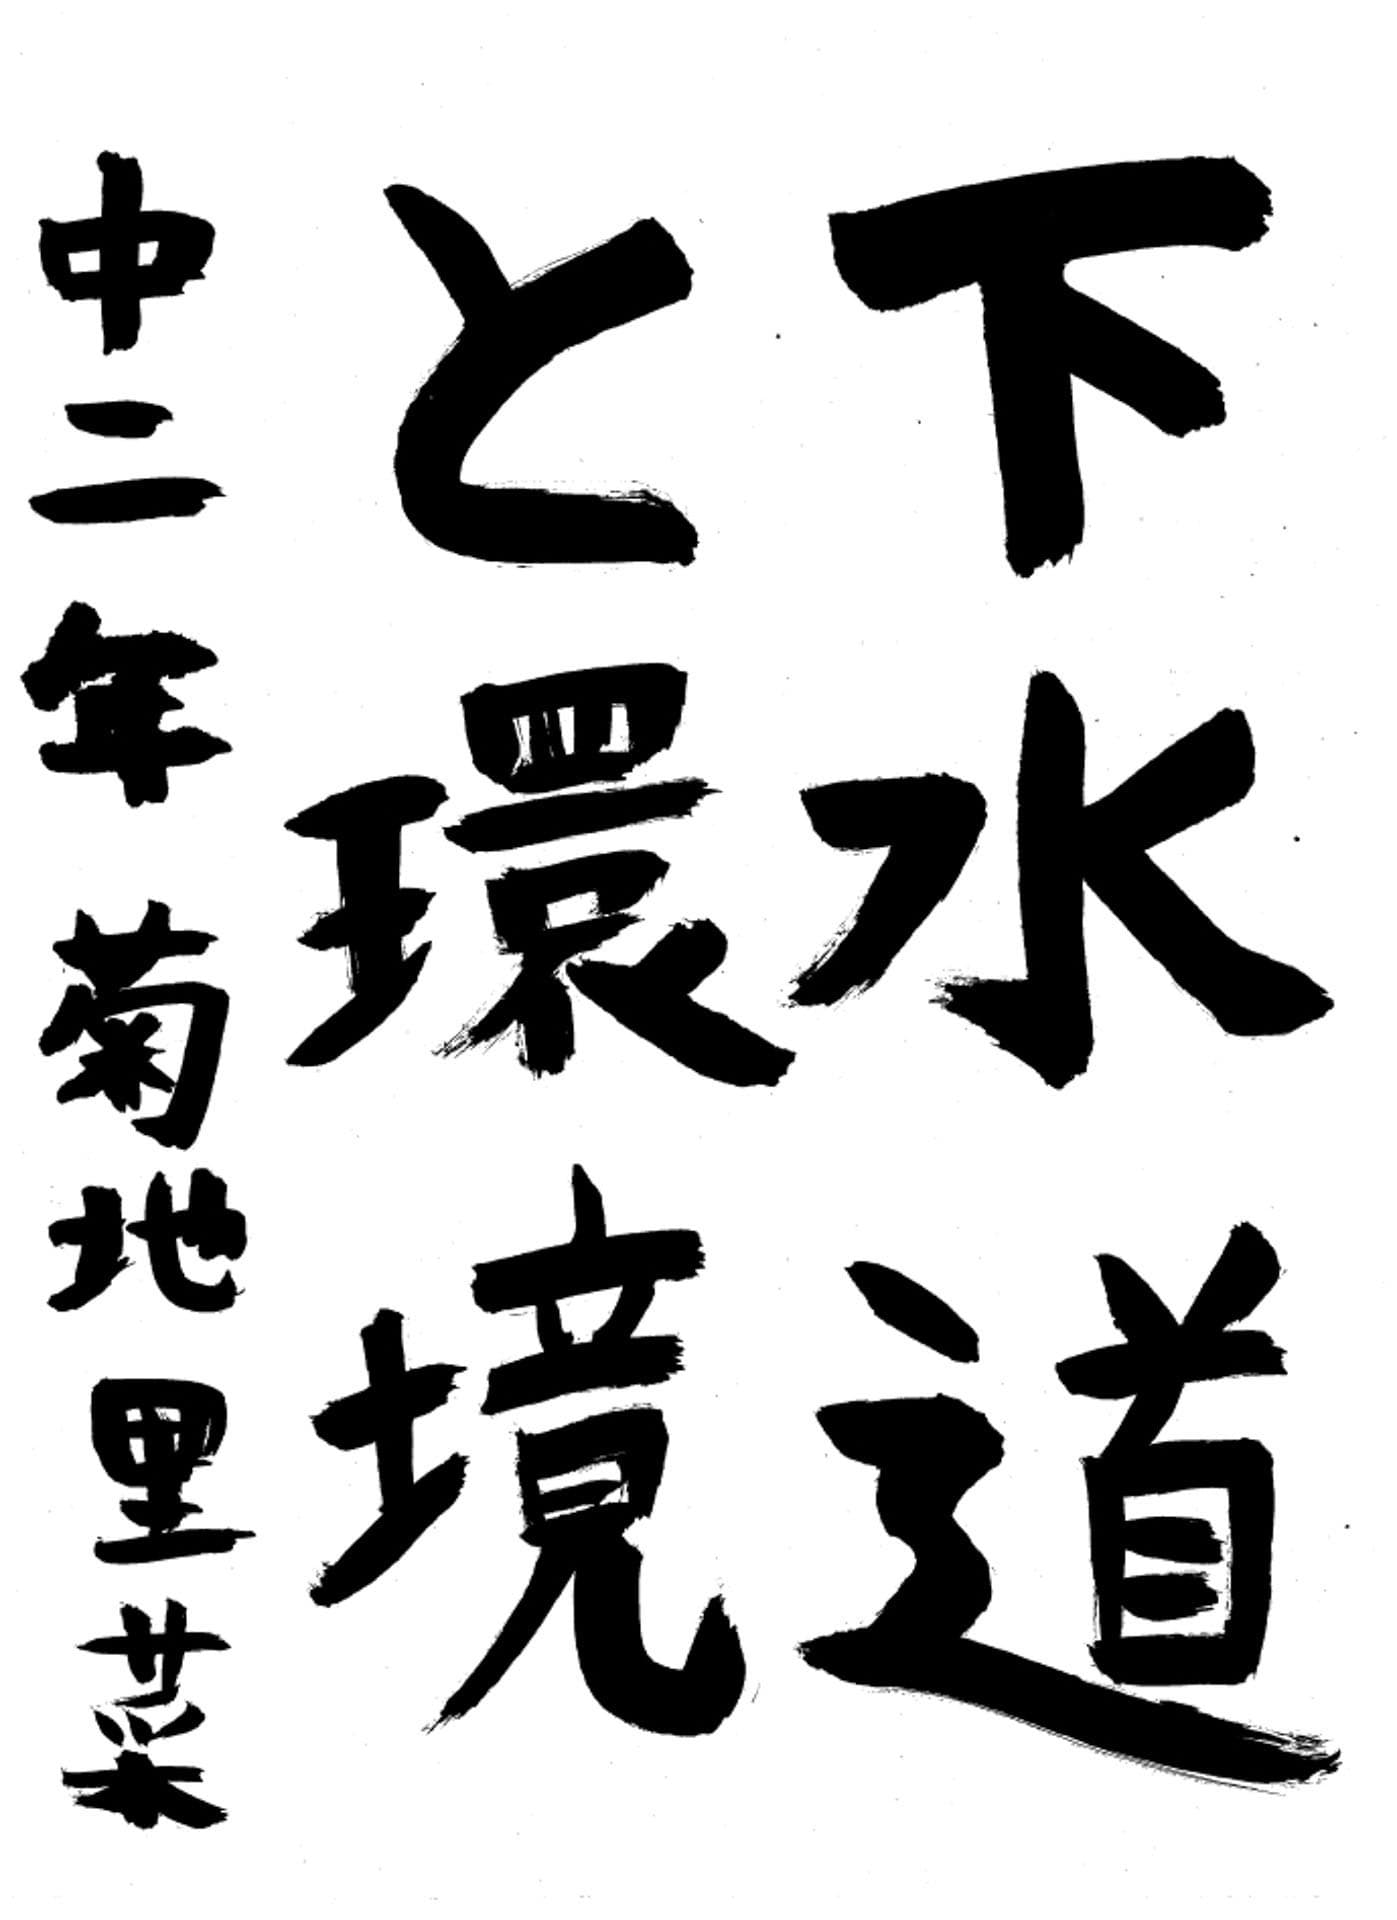 下水道
と環境
中二年 菊地里菜